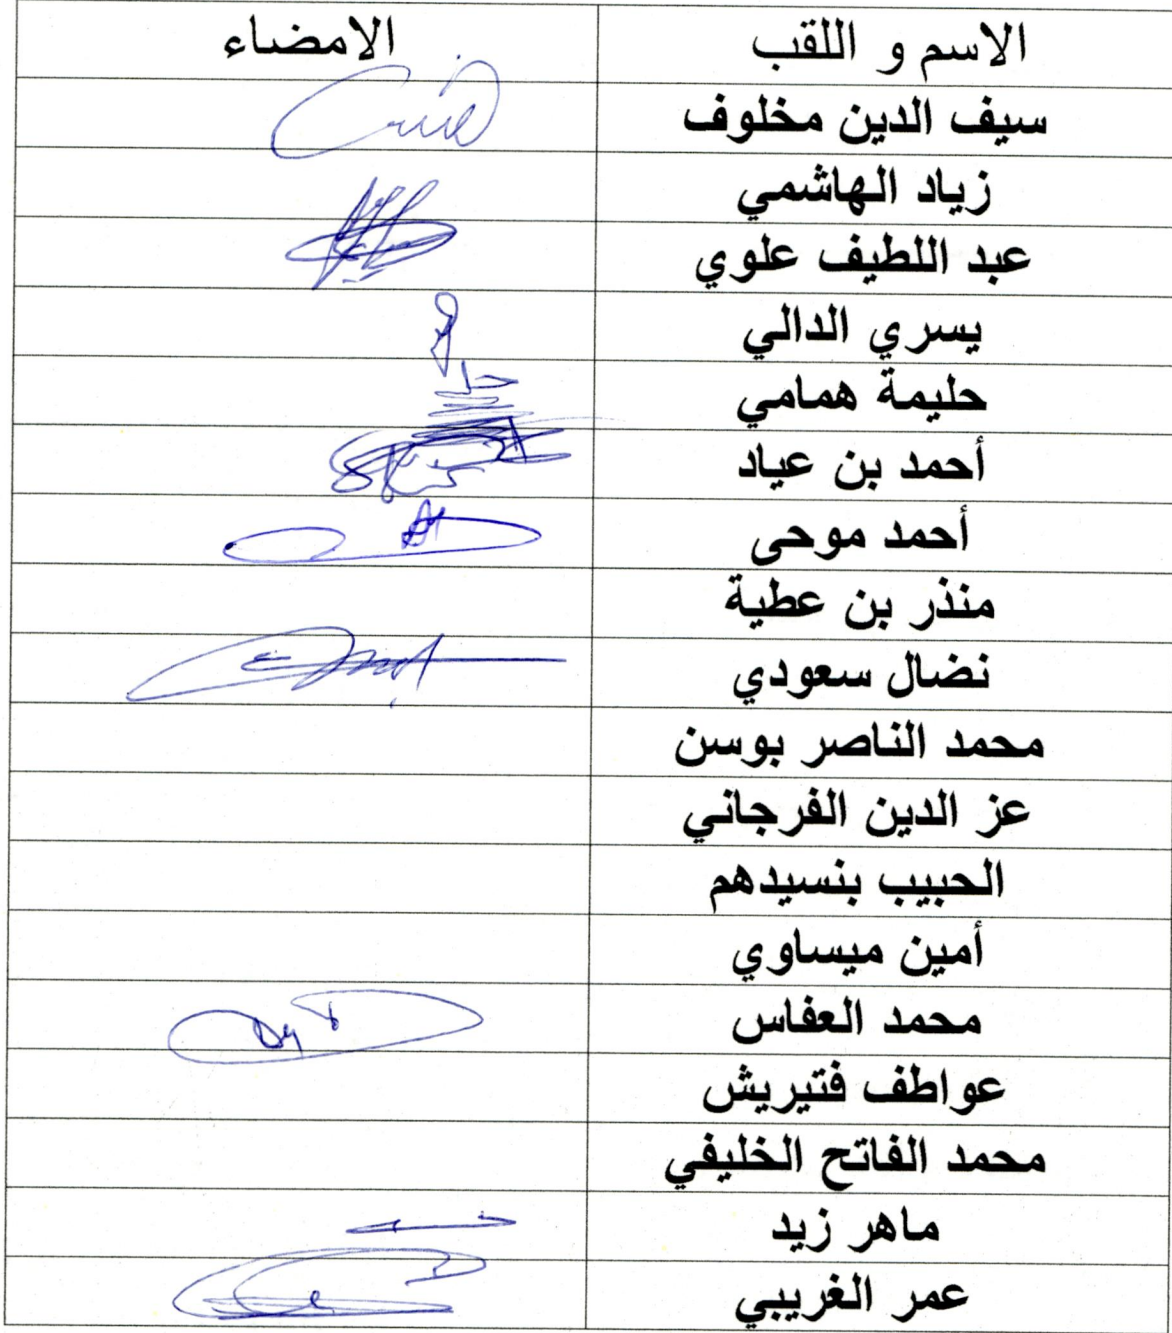 الاسم و اللقب الامضاء
سيف الدين مخلوف
زياد الهاشمي
عبد اللطيف علوي
يسري الدالي
حليمة همامي
أحمد بن عياد
أحمد موحى
منذر بن عطية
نضال سعودي
محمد الناصر بوسن
عز الدين الفرجاني
الحبيب بنسيدهم
أمين ميساوي
محمد العفاس
عواطف فتيريش
محمد الفاتح الخليفي
ماهر زيد
عمر الغريبي